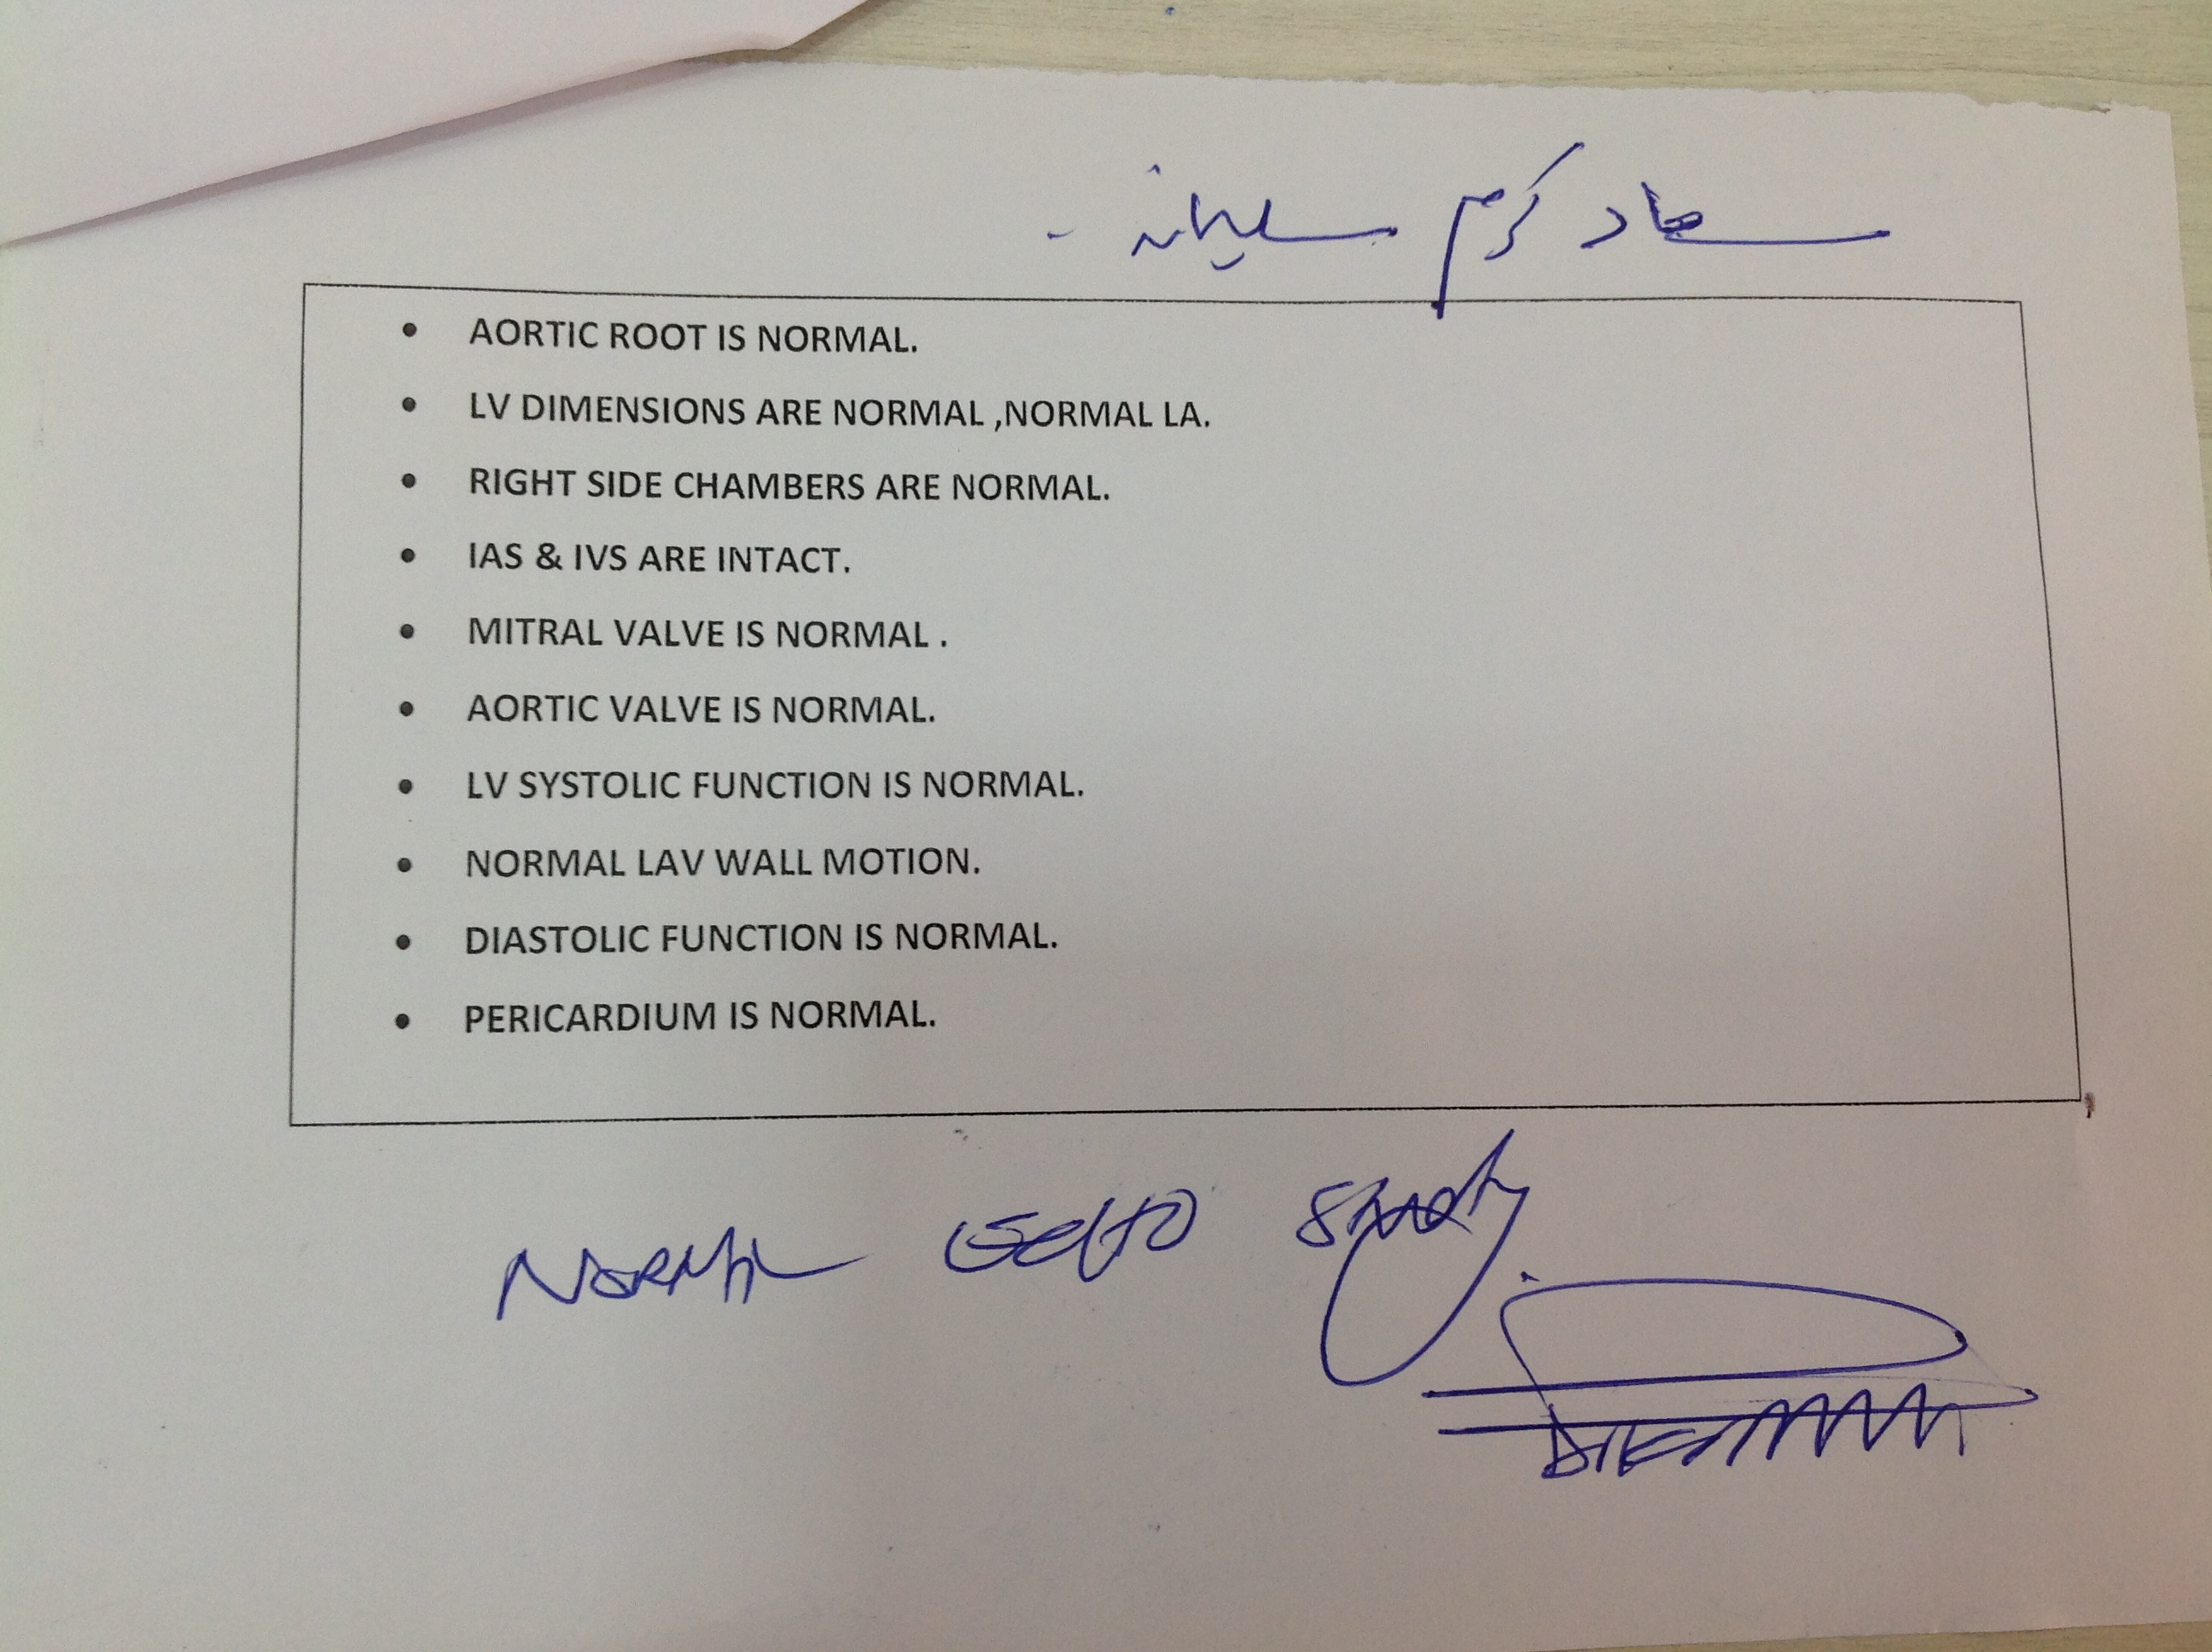 سعاد كرم سليمان -
• AORTIC ROOT IS NORMAL.
• LV DIMENSIONS ARE NORMAL ,NORMAL LA.
• RIGHT SIDE CHAMBERS ARE NORMAL.
• IAS & IVS ARE INTACT.
• MITRAL VALVE IS NORMAL .
• AORTIC VALVE IS NORMAL.
• LV SYSTOLIC FUNCTION IS NORMAL.
• NORMAL LAV WALL MOTION.
• DIASTOLIC FUNCTION IS NORMAL.
• PERICARDIUM IS NORMAL.
NORMAL ECHO Study